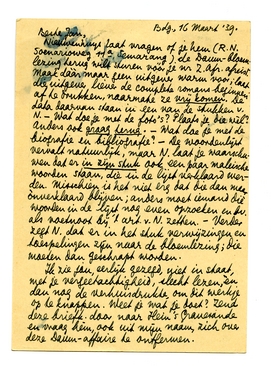 Bdg. 16 Maart '39.
Beste Jan,
Nieuwenhuys laat vragen of je hem (R.N.
Semarang), de Daum-bloem-
lezing terug wilt sturen vóór je nr. 2 Apr. afreist.
Maar daar maar een uitgave waren voor; laat
de uitgever liever de complete romans beginnen
af te drukken, naarmate ze vrij komen. De
data daarvan staan in een van de stukken v.
N. – Wat doe je met de foto's? Plaats je die wel?
anders ook graag terug. – Wat doe je met de
biografie en bibliografie? – De woordenlijst
vervalt natuurlijk, maar N. laat je waarschu-
wen dat er in zijn stuk ook een paar maleische
woorden staan, die in de lijst verklaard wer-
den. Misschien is het niet erg dat die dan maar
onverklaard blijven; anders moet iemand die
woorden in de lijst even opzoeken en b.v.
als voetnoot bij 't art. v. N. zetten. – Verder
zegt N. dat er in het stuk verwijzingen en
toespelingen zijn naar de bloemlezing; die
moeten dan geschrapt worden.
Ik zie jou, eerlijk gezegd, niet in staat,
met je vergeetachtigheid, slecht lezen, en
dan nog de verhuisdrukte, om dit werkje
op te knappen. Weet je wat je doet? Zend
deze briefk. door naar Hein 's Gravesande
en vraag hem, ook uit mijn naam, zich over
deze Daum-affaire te ontfermen.